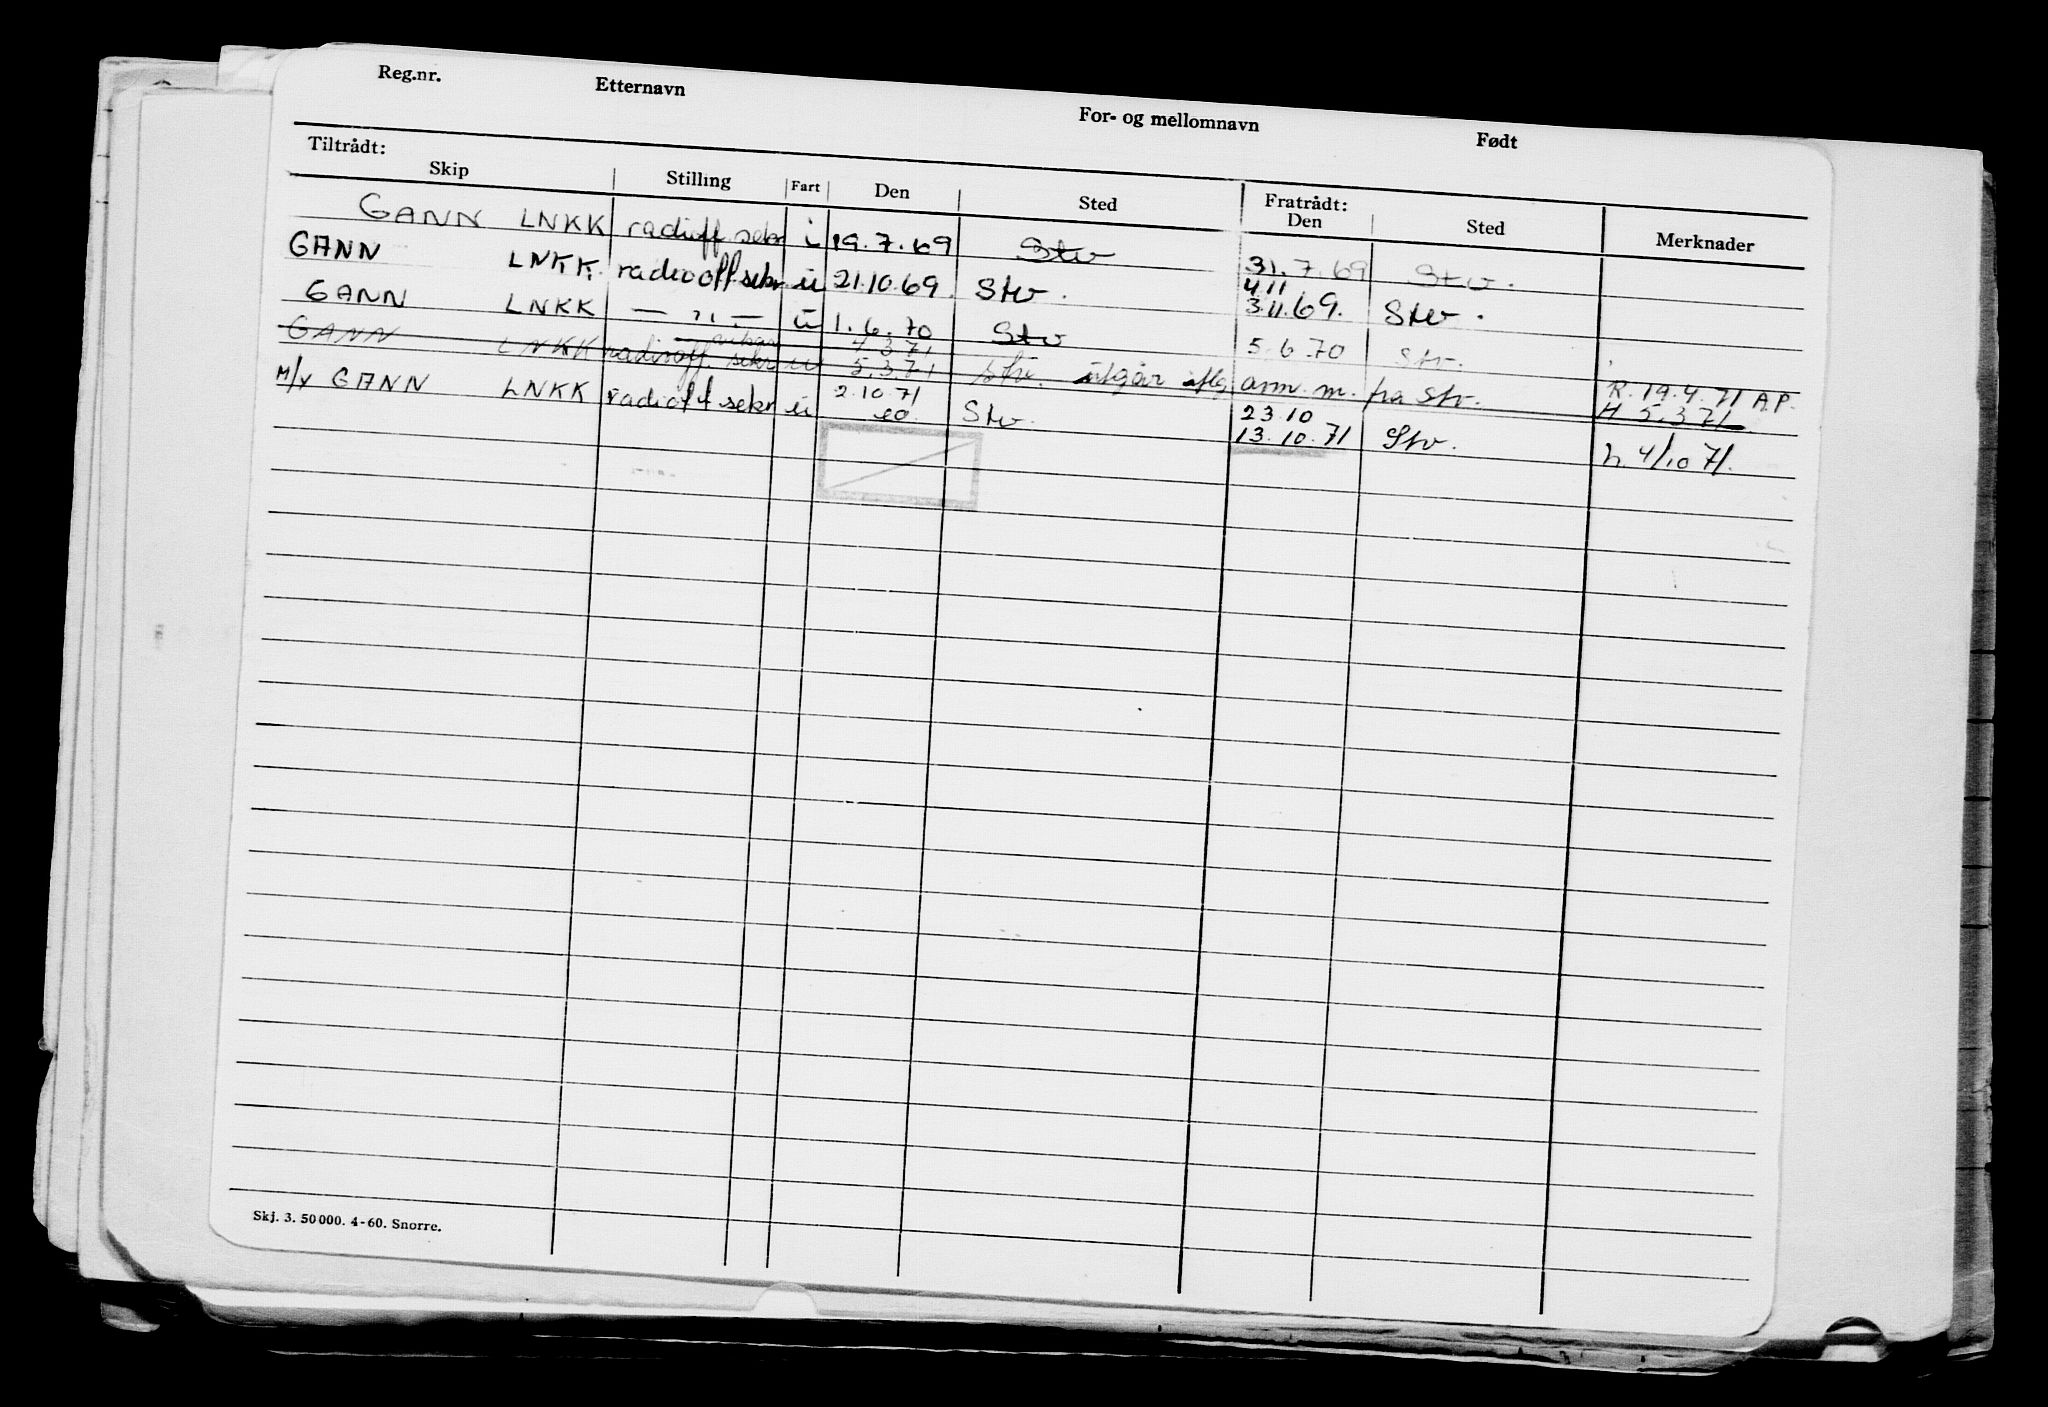 Reg.nr. Etternavn For- og mellomnavn Født
Tiltrådt: Fratrådt:
Skip Stilling Fart Den Sted Den Sted Merknader
GANN LNKK radioff sekr i 19.7.69 Stv 31.7.69 Stv.
GANN LNKK. radiooff.sekr u 21.10.69. Stv. 4 11 3.11.69. Stv.
GANN LNKK — " — u 1.6.70 Stv 5.6.70 Stv.
4.3.71
GANN LNKK radiooff. sekr u 5.3.71 Stv. utgår iflg arm. m. fra Stv. R. 19.4.71 A.P. H 5.3.71.
M/Y GANN LNKK radioff sekr u 2.10.71 Stv. 23.10 13.10.71 Stv. h. 4/10 71.
Skj. 3. 50000. 4-60. Snorre.